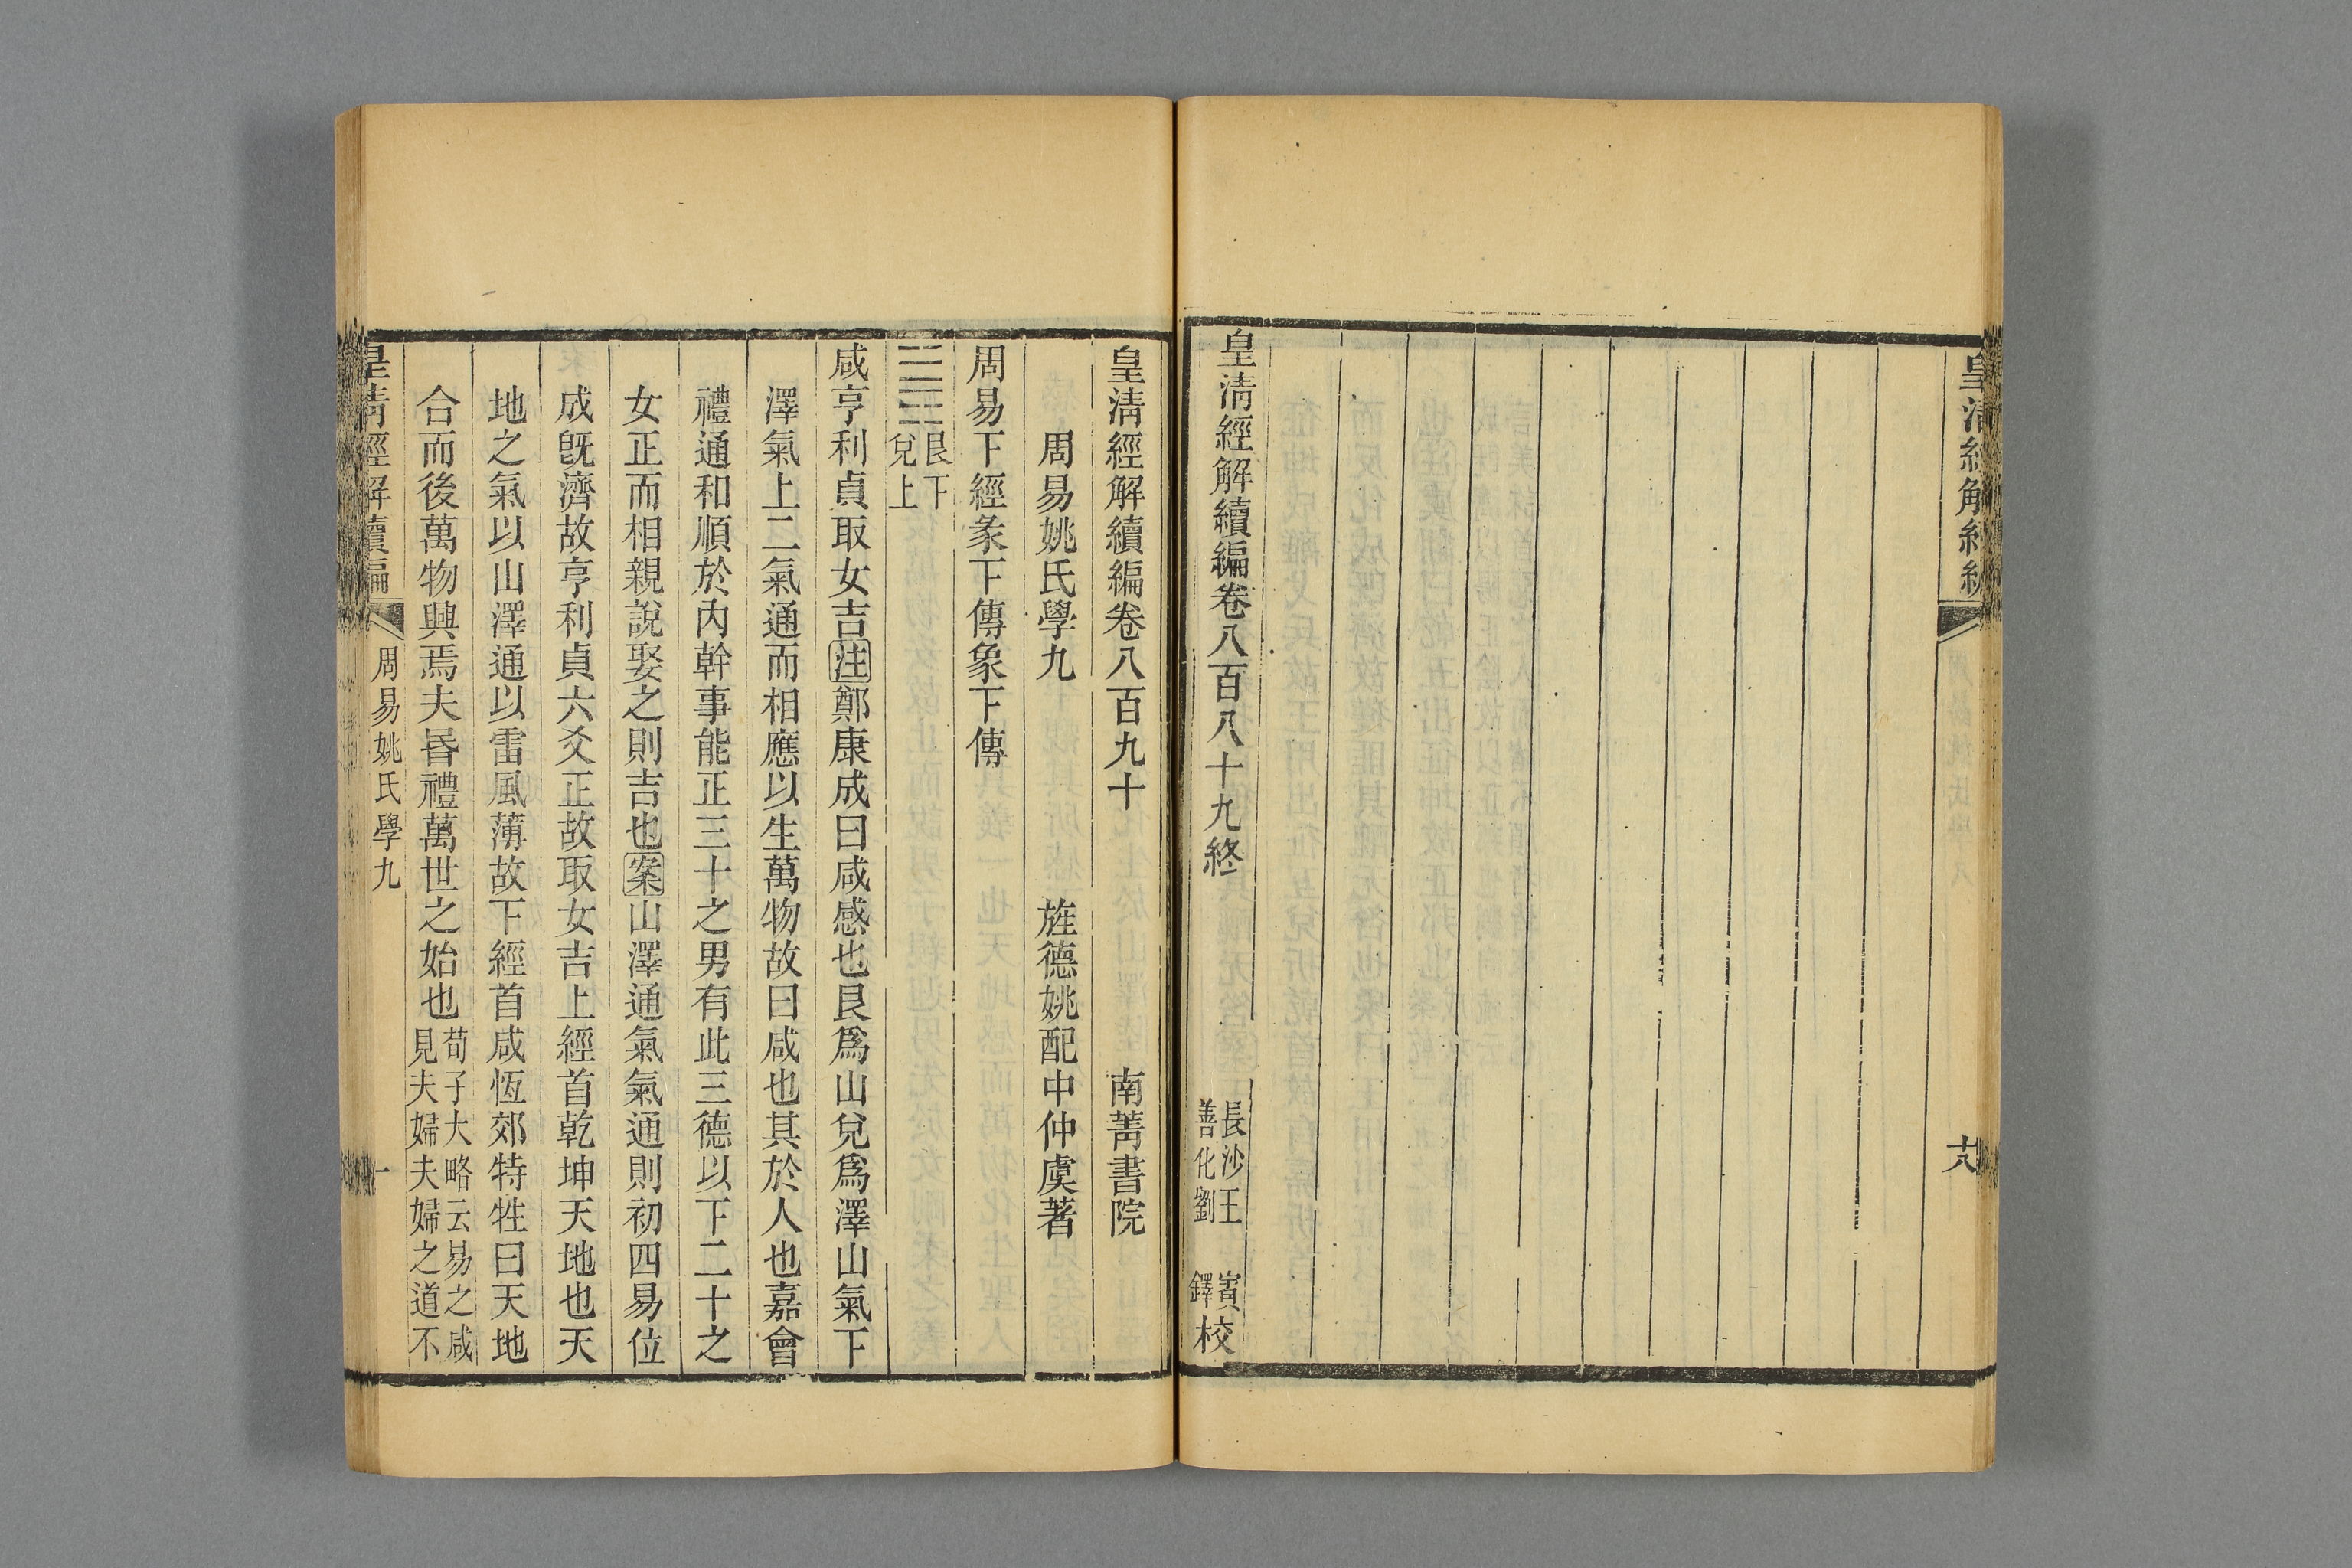 十八
皇清經解續編卷八百八十九終
長沙王 賓
善化劉 鐸
校
皇清經解續編卷八百九十 南菁書院
周易姚氏學九 旌德姚配中仲虞著
周易下經彖下傳象下傳
艮下
兌上
咸亨利貞取女吉注鄭康成曰咸感也艮爲山兌爲澤山氣下
澤氣上二氣通而相應以生萬物故曰咸也其於人也嘉會
禮通和順於內幹事能正三十之男有此三德以下二十之
女正而相親說娶之則吉也案山澤通氣氣通則初四易位
成旣濟故亨利貞六爻正故取女吉上經首乾坤天地也天
地之氣以山澤通以雷風薄故下經首咸恆郊特牲曰天地
合而後萬物興焉夫昬禮萬世之始也
荀子大略云易之咸
見夫婦夫婦之道不
皇清經解續編 周易姚氏學九 一